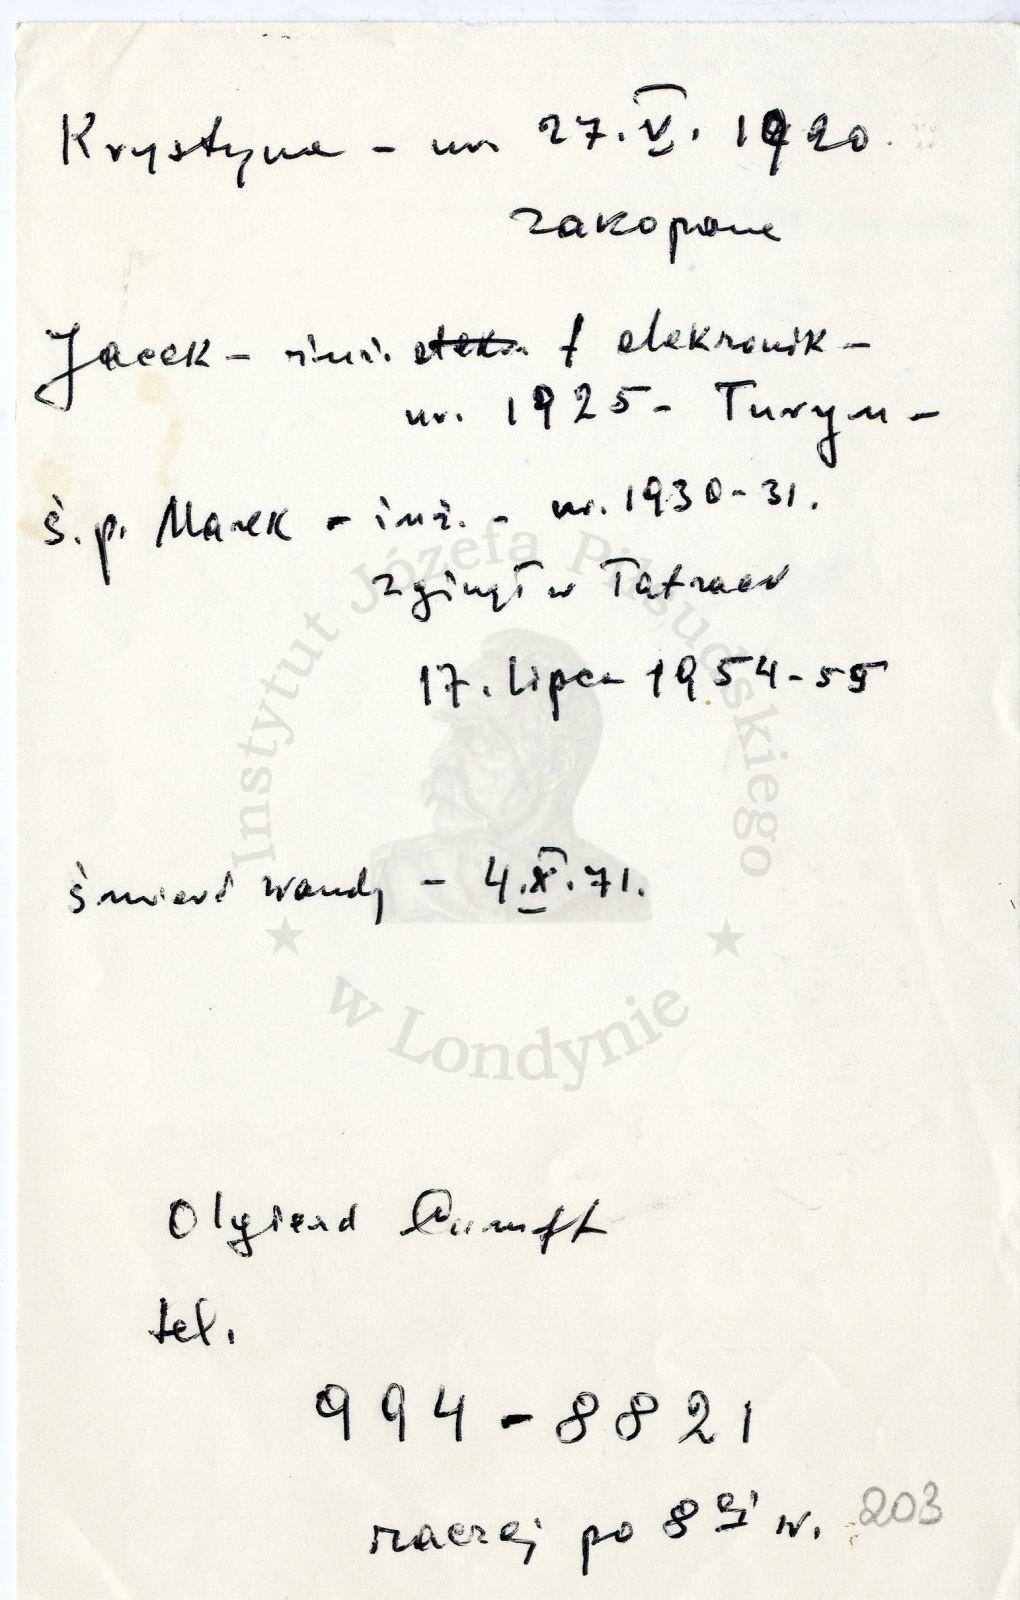 Krystyna - ur. 27.V. 1920.
zakopane
Jacek - inż. / elekronik -
ur. 1925 - Turyn -
ś.p. Marek - inż. - ur. 1930-31.
zginął w Tatrach
17. lipca 1954-55
śmierć Wandy - 4.X.71.
Olgierd
tel.
994-8821
raczej po 8ej w.
203
Instytut Józefa Piłsudskiego
w Londynie